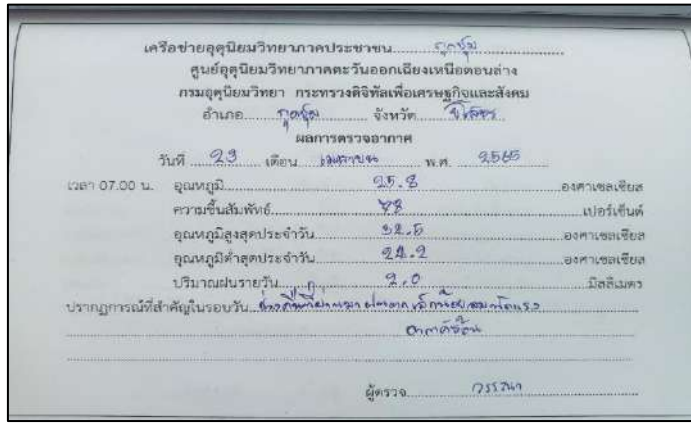 เครือข่ายอุตุนิยมวิทยาภาคประชาชน.....กุดชุม.....
ศูนย์อุตุนิยมวิทยาภาคตะวันออกเฉียงเหนือตอนล่าง
กรมอุตุนิยมวิทยา กระทรวงดิจิทัลเพื่อเศรษฐกิจและสังคม
อำเภอ.....กุดชุม..... จังหวัด.....ยโสธร.....
ผลการตรวจอากาศ
วันที่ 23 เดือน เมษายน พ.ศ. 2565
เวลา 07.00 น. อุณหภูมิ.....25.8.....องศาเซลเซียส
ความชื้นสัมพัทธ์.....78.....เปอร์เซ็นต์
อุณหภูมิสูงสุดประจำวัน.....32.5.....องศาเซลเซียส
อุณหภูมิต่ำสุดประจำวัน.....22.2.....องศาเซลเซียส
ปริมาณฝนรายวัน.....2.0.....มิลลิเมตร
ปรากฏการณ์ที่สำคัญในรอบวัน..ช่วงคืนที่ผ่านมาฝนตกเล็กน้อยลมพัดแรง
อากาศร้อน
ผู้ตรวจ.....วรรณา.....